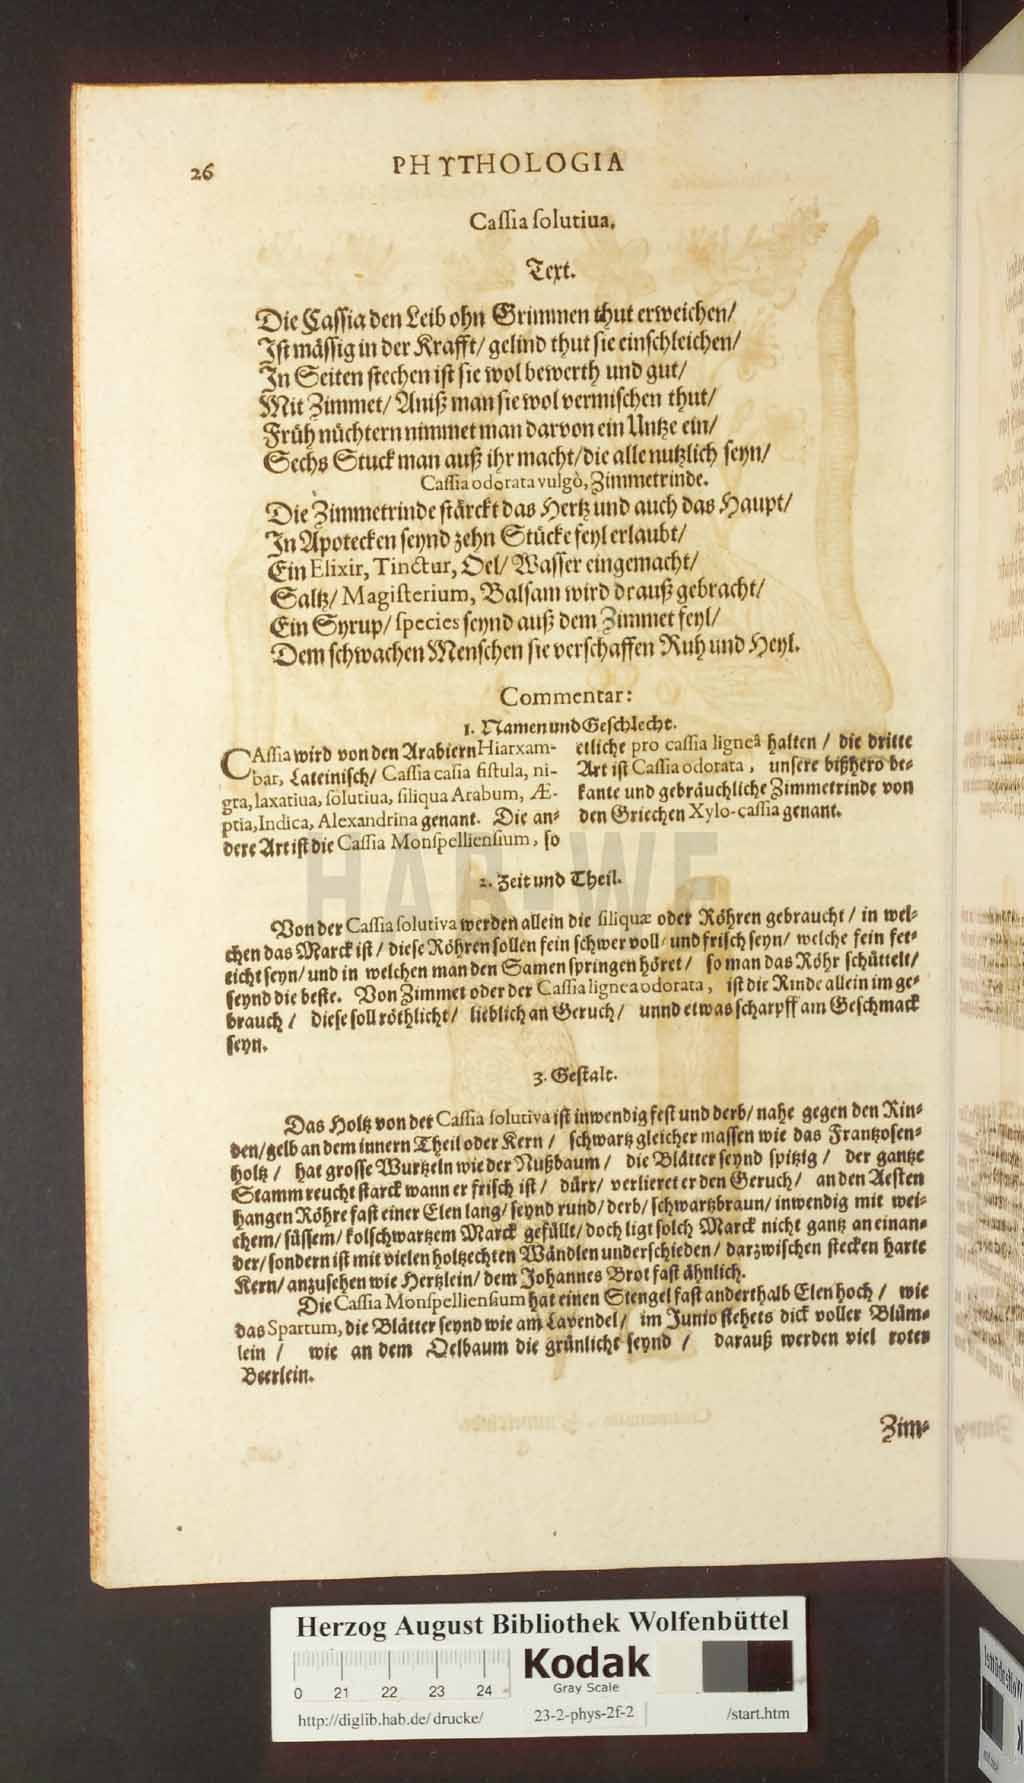 26
PHYTHOLOGIA
Caſſia ſolutiua.
Text.
Die Caſſia den Leib ohn Grimmen thut erweichen/
Iſt mässig in der Krafft/ gelind thut ſie einſchleichen/
In Seiten ſtechen iſt ſie wol bewerth und gut/
Mit Zimmet/ Aniß man ſie wol vermiſchen thut/
Früh nüchtern nimmet man darvon ein Untze ein/
Sechs Stuck man auß ihr macht/ die alle nutzlich ſeyn/
Caſſia odorata vulgò, Zimmetrinde.
Die Zimmetrinde ſtärckt das Hertz und auch das Haupt/
In Apotecken ſeynd zehn Stücke feyl erlaubt/
Ein Elixir, Tinctur, Oel/ Waſſer eingemacht/
Saltz/ Magiſterium, Balſam wird drauß gebracht/
Ein Syrup/ ſpecies ſeynd auß dem Zimmet feyl/
Dem ſchwachen Menſchen ſie verſchaffen Ruh und Heyl.
Commentar:
1. Namen und Geſchlecht.
CAſſia wird von den Arabiern Hiarxam-
bar, Lateiniſch/ Caſſia caſia fiſtula, ni-
gra, laxatiua, ſolutiua, ſiliqua Arabum, Æ-
ptia, Indica, Alexandrina genant. Die an-
dere Art iſt die Caſſia Monſpellienſium, ſo
etliche pro caſſia ligneâ halten / die dritte
Art iſt Caſſia odorata, unſere bißhero be-
kante und gebräuchliche Zimmetrinde von
den Griechen Xylo-caſſia genant.
HAB-WF
2. Zeit und Theil.
Von der Caſſia ſolutiva werden allein die ſiliquæ oder Röhren gebraucht / in wel-
chen das Marck iſt / dieſe Röhren ſollen fein ſchwer voll/ und friſch ſeyn/ welche fein fet-
ticht ſeyn/ und in welchen man den Samen ſpringen höret / ſo man das Röhr ſchüttelt/
ſeynd die beſte. Von Zimmet oder der Caſſia lignea odorata, iſt die Rinde allein im ge-
brauch / dieſe ſoll röthlicht/ lieblich an Geruch/ unnd etwas ſcharpff am Geſchmack
ſeyn.
3. Geſtalt.
Das Holtz von der Caſſia ſolutiva iſt inwendig feſt und derb/ nahe gegen den Rin-
den/ gelb an dem innern Theil oder Kern / ſchwartz gleicher maſſen wie das Frantzoſen-
holtz / hat groſſe Wurtzeln wie der Nußbaum / die Blätter ſeynd ſpitzig / der gantze
Stamm reucht ſtarck wann er friſch iſt / dürr/ verlieret er den Geruch / an den Aeſten
hangen Röhre faſt einer Elen lang/ ſeynd rund/ derb/ ſchwartzbraun/ inwendig mit wei-
chem/ ſüſſem/ kolſchwartzem Marck gefüllt/ doch ligt ſolch Marck nicht gantz an einan-
der/ ſondern iſt mit vielen holtzechten Wändlen underſchieden/ darzwiſchen ſtecken harte
Kern/ anzuſehen wie Hertzlein/ dem Johannes Brot faſt ähnlich.
Die Caſſia Monſpellienſium hat einen Stengel faſt anderthalb Elen hoch / wie
das Spartum, die Blätter ſeynd wie am Lavendel/ im Junio ſtehets dick voller Blüm-
lein / wie an dem Oelbaum die grünlicht ſeynd / darauß werden viel roter
Beerlein.
Zim-
Herzog August Bibliothek Wolfenbüttel
Kodak
Gray Scale
0 21 22 23 24
http://diglib.hab.de/drucke/ 23-2-phys-2f-2 /start.htm